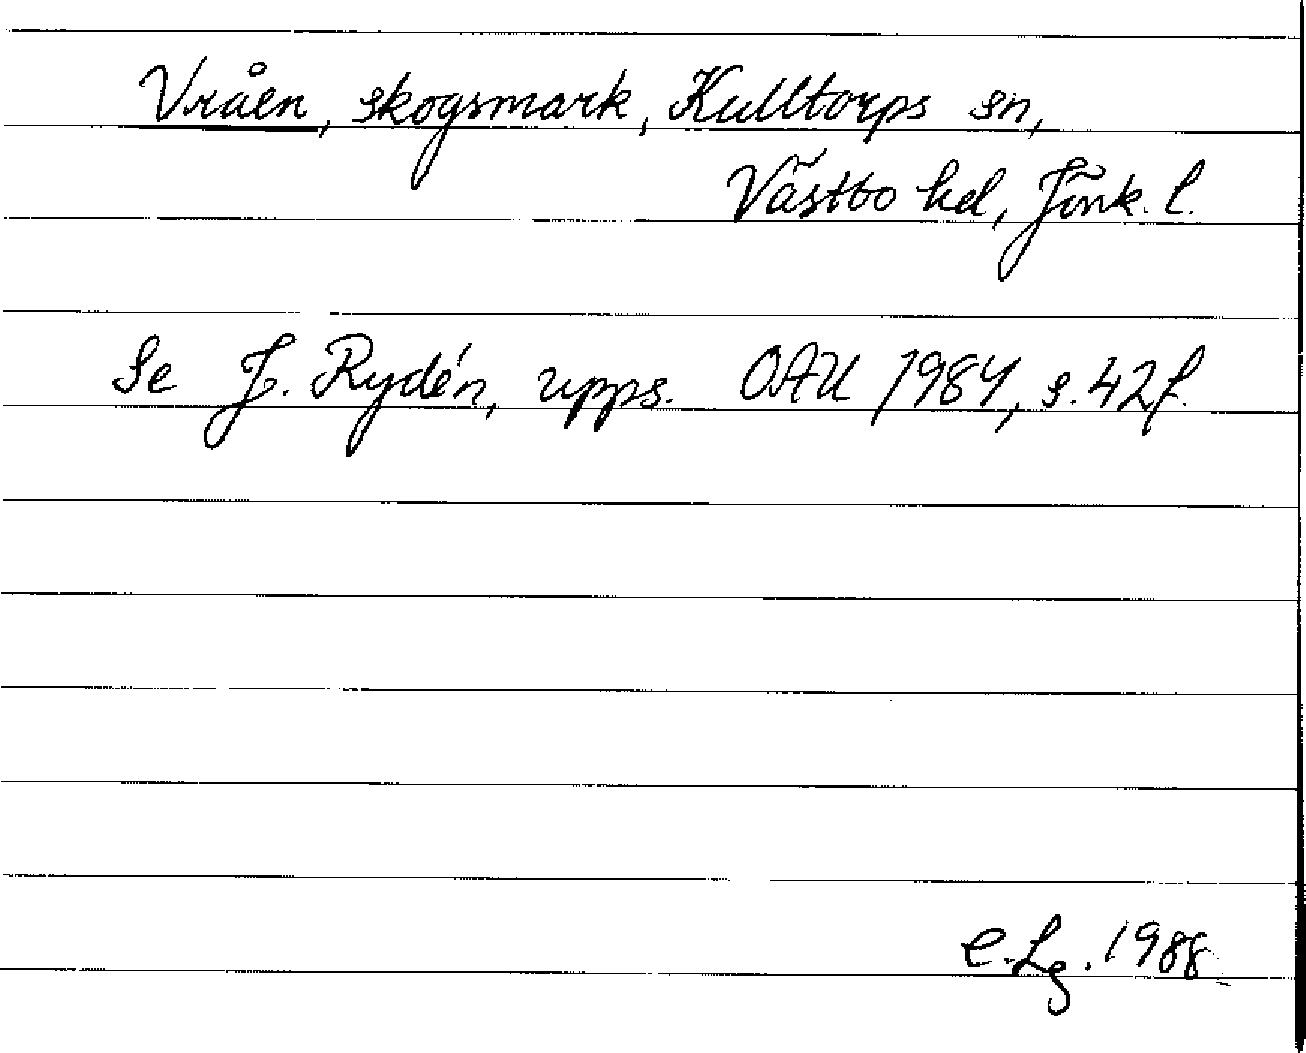 Vråen, skogsmark, Kulltorps sn,
Västbo hd, Jönk. l.
Se J. Rydén, upps. OAU 1984, s. 42 f.
C. Lg. 1988